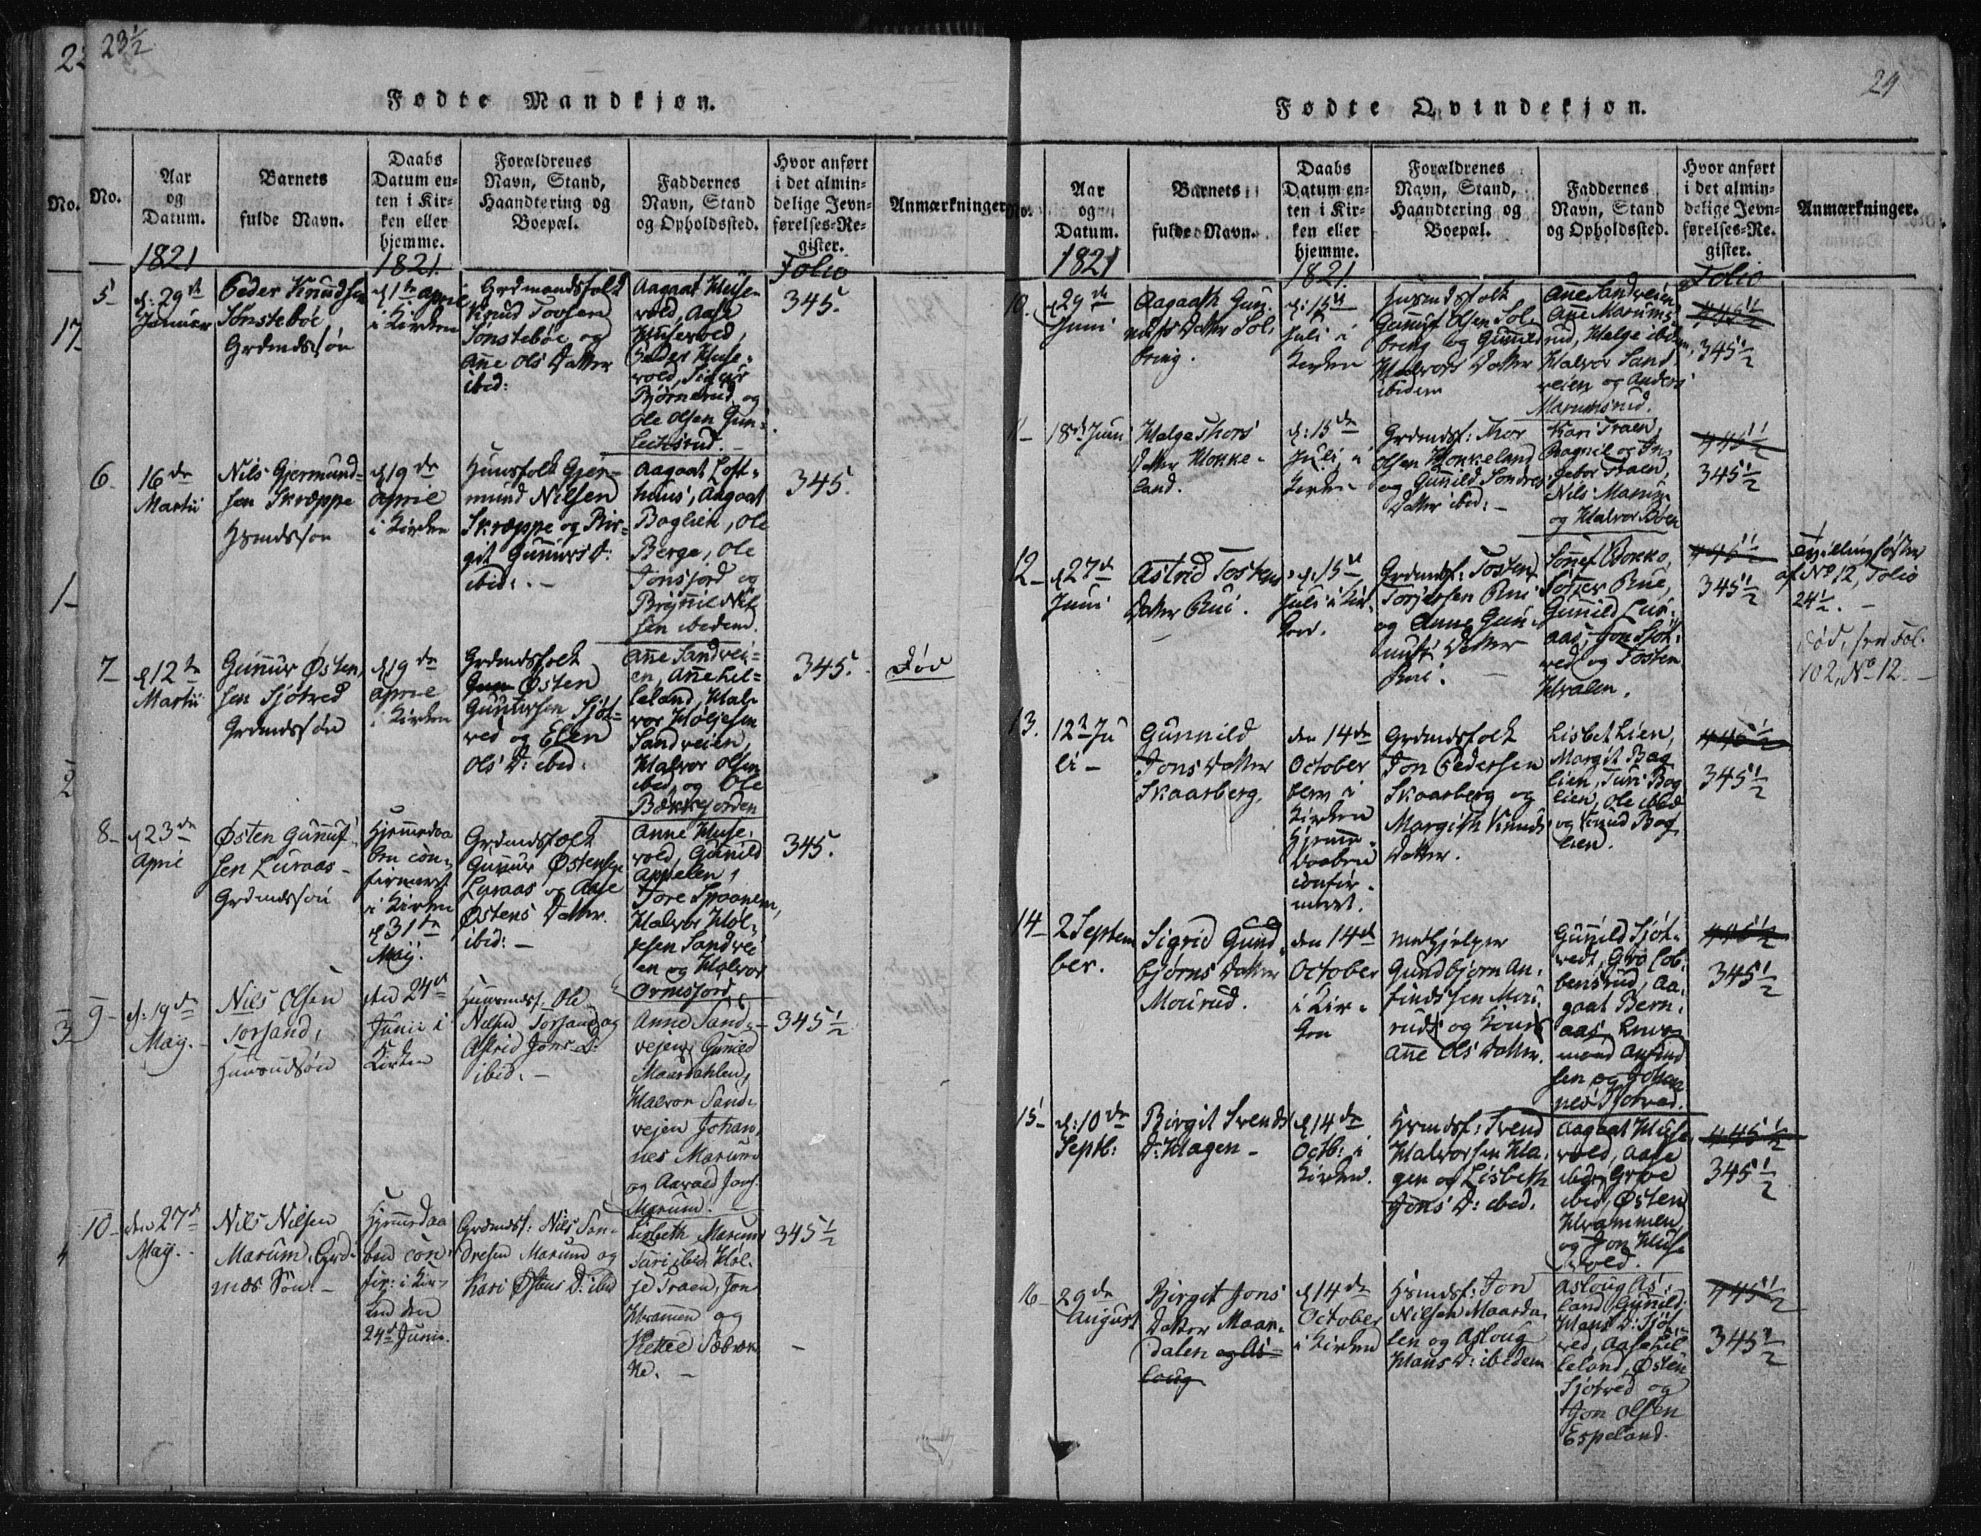 22
23½
Fødte Mandkjøn.
No.
No.
Aar
og
Datum.
Barnets
fulde Navn.
Daabs
Datum en-
ten i Kir-
ken eller
hjemme.
Forældrenes
Navn, Stand,
Haandtering og
Boepæl.
Faddernes
Navn, Stand
og Opholdssted.
Hvor anført
i det almin-
delige Jevn-
førelses-Re-
gister.
Anmærkninger
1821
1821.
Folio
17
1
2
3
4
5
d: 29de
Januar
Peder Knudsen
Sønstebøe
Grdmdssøn
d 1te april
i Kirken
Grdmandsfolk
Knud Tovsen
Sønstebøe og
Ane Ols Datter
ibid:
Aagaat Huse-
vold, Aase
Husevold,
Peder Huse-
vold,
Bjørnerud og
Ole Olsen Gun-
345.
6
16de
Martii
Nils Gjermund-
sen Skræppe
Hsmdssøn
d 19de
april
i Kirken
Huusfolk Gjer-
mund Nilsen
Skræppe og Bir-
git Gunnurs D:
ibid: -
Aagaat Loft-
huus, Aagaat
Boglien, Ole
Berge, Ole
Jonsjord og
Brynnil Nil-
sen ibidem.
345.
7
d 12te
Martii
Gunnur Østen-
sen Sjøtved
Grdmdssøn
d 19de
aprile
i Kirken
Grdmdsfolk
Østen
Gunnursen Sjøt-
ved og Elen
Ols D: ibid:
Ane Sandvei-
en, Ane Lil-
leland, Hal-
vor Høljesen
Sandveien,
Halvor Olsen
ibid, og Ole
Bækkejorden
345.
Død
8
d 23de
April
Østen Gunnuf-
sen Luraas
Grdmdssøn
Hjemmedaa
ben con-
firmert
i Kirken
d 31te
Maÿ.
Grdmdsfolk
Gunnur Østensen
Luraas og Aase
Østens Datter
ibid: -
Anne Huse-
vold, Gunild
Appelen,
Tore Spaanem,
Halvor Høl-
jesen Sandvei
en og Halvor
Ormsjord
345.
9
d: 19de
Maÿ.
Nils Olsen
Torsand,
Huusmdssøn
den 24de
Junii i
Kirken
Huusmdsf: Ole
Nilsen Torsand og
Astrid Jons D:
ibid: -
Anne Sand-
vejen, Gunild
Maardahlen,
Halvor Sand-
vejen, Johan-
nes Marum
og Aavald Jons.
Marum.
345½
10
den 27de
Maÿ.
Nils Nilsen
Marum, Grd-
mds Søn
Hjemmedaa
ben con-
fir: i Kir-
ken den
24de Junii.
Grdmdsf: Nils Son-
dresen Marum og
Kari Østens D: ibid
Lisbeth Marum
Turi ibid, Høl-
je Traen, Jon
Hvammen og
Kettil Sæbræ-
ke.
345½
24
Fødte Qvindekjøn.
No.
Aar
og
Datum.
Barnets
fulde Navn.
Daabs
Datum en-
ten i Kir-
ken eller
hjemme.
Forældrenes
Navn, Stand,
Haandtering og
Boepæl.
Faddernes
Navn, Stand
og Opholdssted.
Hvor anført
i det almin-
delige Jevn-
førelses-Re-
gister.
Anmærkninger.
1821
1821.
Folio
10.
d 29de
Juni
Aagaath Gun-
nufs Datter Sol-
bring.
d: 15de
Juli i
Kirken
Husmdsfolk
Gunnuf Olsen Sol-
bring og Gunnild
Halvors Datter
ibidem
Ane Sandveien,
Ane Marums-
rud, Helge ibidem,
Halvor Sand
veien og Anders
Marumsrud.
445½
345½
11
18de Juni
Helge Thors
Datter Hokke-
land.
d: 15de
Juli i
Kirken
Grdmdsf: Thor
Olsen Hokkeland
og Gunild Sondres
Datter ibid:
Kari Traen,
Ragnil og In-
gebor Traen,
Nils Marum
og Halvor Bøen
445½
345½
12
d 27de
Juni
Astrid Tostens
Datter Rui.
d 15de
Juli i Kir-
ken.
Grdmdsf: Tosten
Torjersen Rui
og Anne Gun-
nufs Datter
Rui.
Sønnef Bokko,
Rue,
Gunnild Lur-
aas, Jon Sjøt-
ved og Tosten
Hvalen.
445½
345½
Tvillingsøster
af No 12, Folio
24½. -
Død, see Fol.
102, No 12. -
13.
12te Ju
li
Gunnild
Jons Datter
Skaarberg.
den 14de
October
blev i
Kirken
Hjemme-
daaben
confir-
meret.
Grdmdsfolk
Jon Pedersen
Skaarberg og
Margith Knuds
Datter.
Lisbet Lien,
Margit Bog
lien, Turi Bog
lien, Ole ibid
og Knud Bog
lien.
445½
345½
14
2 Septem
ber.
Sigrid Gund-
bjørns Datter
Mourud.
den 14de
October
i Kir-
ken
Medhjelper
Gundbjørn An-
findssen Mou-
rud og Kone
Ane Ols Datter.
Gunild Sjøt-
vedt, Gro Lob-
bensrud, Aa-
gaat Bern-
aas,
mond Anfind
sen og Johan
nes Sjøtved.
445½
345½
15
d: 10de
Septb:
Birgit Svends
D: Hagen
d 14de
Octb: i
Kirken.
Hsmdsf: Svend
Halvorsen Ha-
gen og Lisbeth
Jons D: ibid.
Aagaat Huse
vold, Aase
ibid, Groe
ibid, Østen
Hvammen,
og Jon Huse
vold.
445½
345½
16
29de
August
Birgit Jons
Datter Maar-
dalen og As-
loug
d 14de
October
i Kirken
Hsmdsf: Jon
Nilsen Maarda-
len og Asloug
Hans D: ibidem
Asloug As-
land, Gunild
Hans D: Sjøt-
ved, Aase Lil-
leland, Østen
Sjøtved og
Jon Olsen
Espeland.
445½
345½